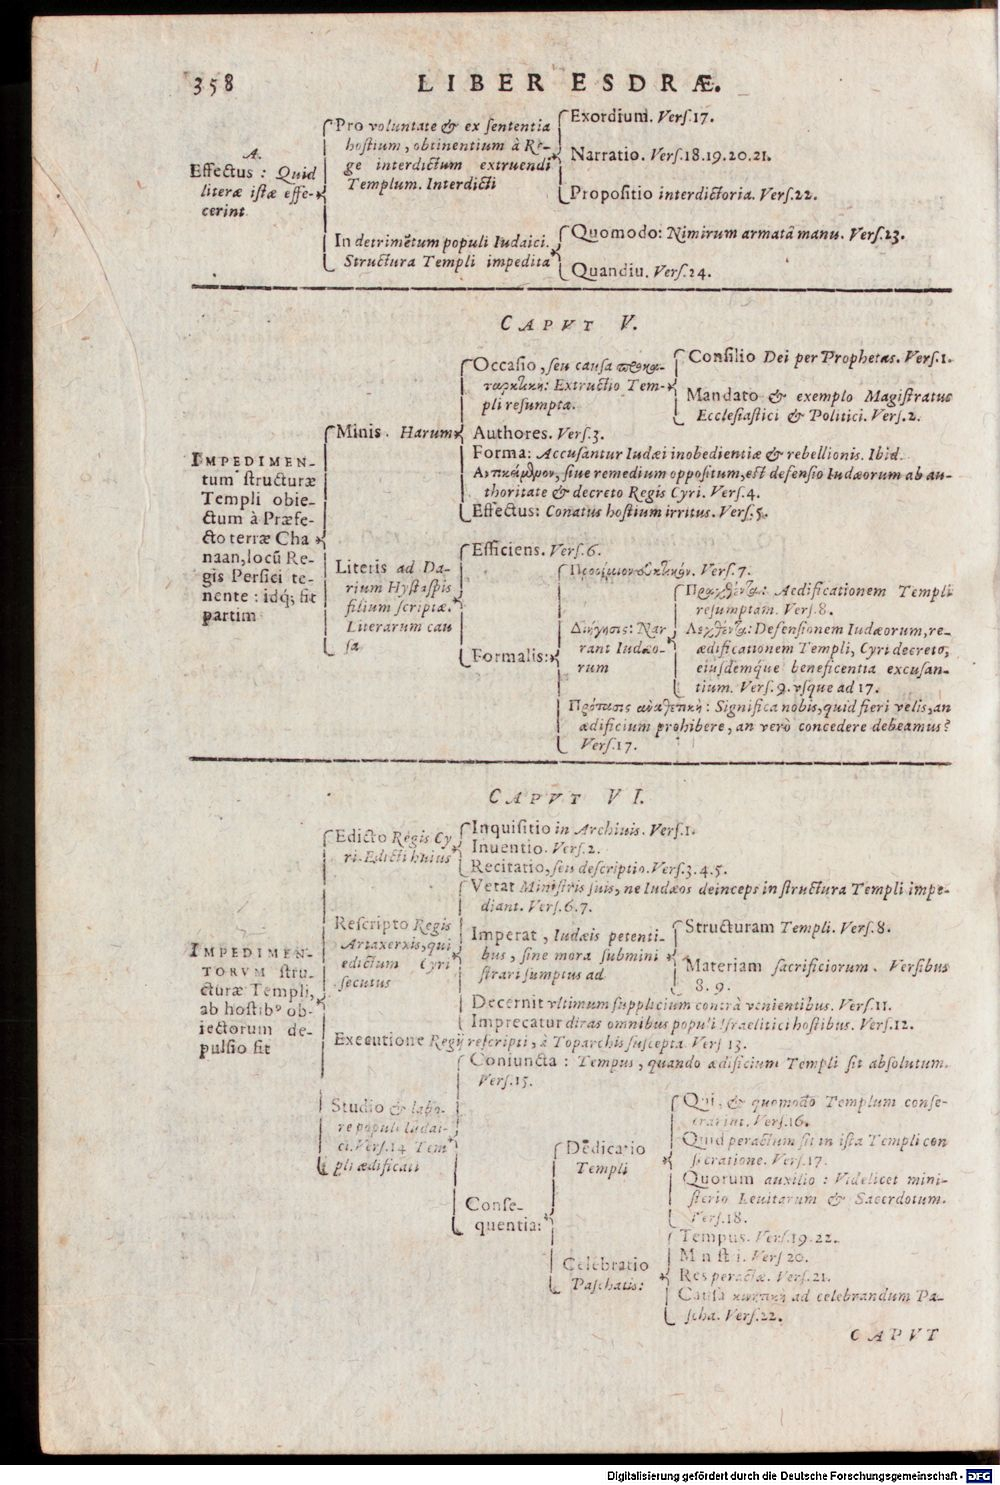 358
LIBER ESDRÆ.
A.
Effectus: Quid
literæ istæ effe-
cerint
Pro voluntate & ex sententia
hostium, obtinentium à Re-
ge interdictum extruendi
Templum. Interdicti
Exordium. Vers.17.
Narratio. Vers.18.19.20.21.
Propositio interdictoria. Vers.22.
In detrimētum populi Iudaici.
Structura Templi impedita
Quomodo: Nimirum armatâ manu. Vers.23.
Quandiu. Vers.24.
CAPVT V.
IMPEDIMEN-
tum structuræ
Templi obie-
ctum à Præfe-
cto terræ Cha
naan, locū Re-
gis Persici te-
nente: idq́; fit
partim
Minis. Harum
Occasio, seu causa προκα-
ταρκτικὴ: Extructio Tem-
pli resumpta.
Consilio Dei per Prophetas. Vers.1.
Mandato & exemplo Magistratus
Ecclesiastici & Politici. Vers.2.
Authores. Vers.3.
Forma: Accusantur Iudæi inobedientiæ & rebellionis. Ibid.
siue remedium oppositum, est defensio Iudæorum ab au-
thoritate & decreto Regis Cyri. Vers.4.
Effectus: Conatus hostium irritus. Vers.5.
Literis ad Da-
rium Hystaspis
filium scriptæ.
Literarum cau
sa
Efficiens. Vers.6.
Formalis:
Vers.7.
Διήγησις: Nar
rant Iudæo-
rum
Πραχθέντα: Aedificationem Templi
resumptam. Vers.8.
Λεχθέντα: Defensionem Iudæorum, re-
ædificationem Templi, Cyri decreto,
eiusdemq́ue beneficentia excusan-
tium. Vers.9. vsque ad 17.
Πρότασις : Significa nobis, quid fieri velis, an
ædificium prohibere, an verò concedere debeamus?
Vers.17.
CAPVT VI.
IMPEDIMEN-
TORVM stru-
cturæ Templi,
ab hostibꝰ ob-
iectorum de-
pulsio fit
Edicto Regis Cy
ri. Edicti huius
Inquisitio in Archiuis. Vers.1.
Inuentio. Vers.2.
Recitatio, seu descriptio. Vers.3.4.5.
Rescripto Regis
Artaxerxis, qui
edictum Cyri
secutus
Vetat Ministris suis, ne Iudæos deinceps in structura Templi impe-
diant. Vers.6.7.
Imperat, Iudæis petenti-
bus, sine mora submini
strari sumptus ad
Structuram Templi. Vers.8.
Materiam sacrificiorum. Versibus
8.9.
Decernit vltimum supplicium contrà venientibus. Vers.11.
Imprecatur diras omnibus populi Israelitici hostibus. Vers.12.
Executione Regij rescripti, à Toparchis suscepta. Vers 13.
Studio & labo-
re populi Iudai-
ci. Vers.14 Tem
pli ædificati
Coniuncta: Tempus, quando ædificium Templi sit absolutum.
Vers.15.
Conse-
quentia:
Dedicatio
Templi
Qui, & quomodo Templum conse-
crarint. Vers.16.
Quid peractum sit in ista Templi con
secratione. Vers.17.
Quorum auxilio: Videlicet mini-
sterio Leuitarum & Sacerdotum.
Vers.18.
Celebratio
Paschatis:
Tempus. Vers.19.22.
Vers 20.
Res peractæ. Vers.21.
Causa ad celebrandum Pa-
scha. Vers.22.
CAPVT
Digitalisierung gefördert durch die Deutsche Forschungsgemeinschaft - DFG